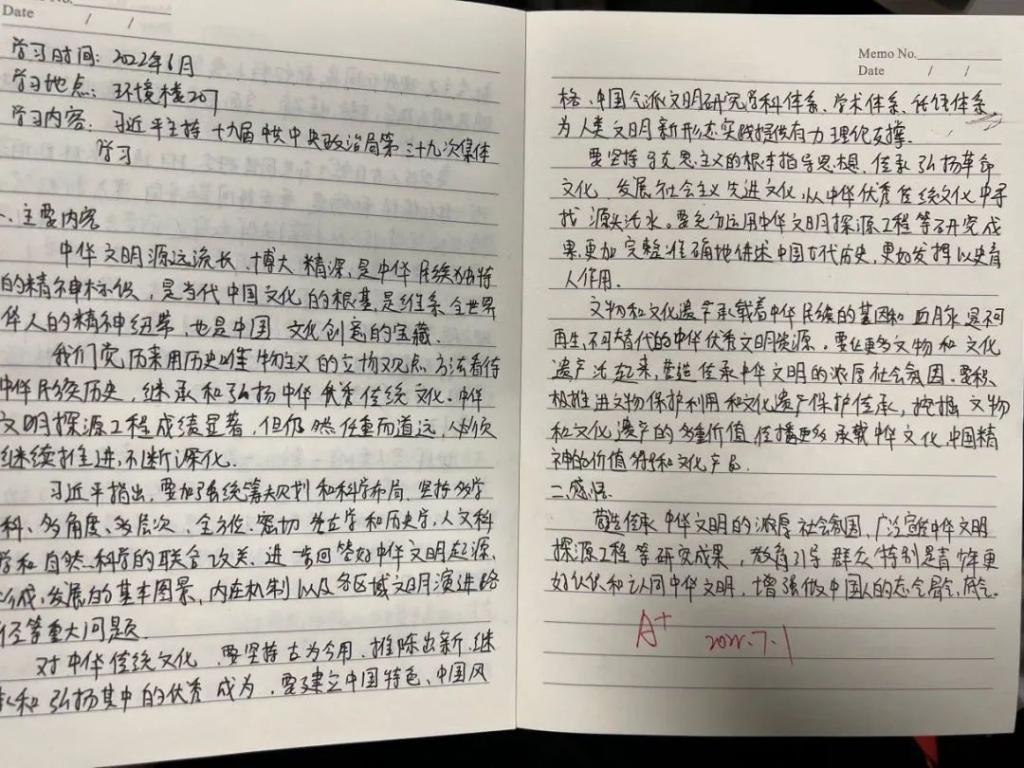 No.
Date / /
学习时间：2022年6月
学习地点：环境楼207
学习内容：习近平主持十九届中共中央政治局第三十九次集体
学习
一、主要内容
中华文明源远流长、博大精深，是中华民族独特
的精神标识，是当代中国文化的根基，是维系全世界
华人的精神纽带，也是中国文化创意的宝藏。
我们党历来用历史唯物主义的立场观点方法看待
中华民族历史，继承和弘扬中华优秀传统文化。中华
文明探源工程成绩显著，但仍然任重而道远，必须
继续推进，不断深化。
习近平指出，要加强统筹规划和科学布局，坚持多学
科、多角度、多层次、全方位，密切考古学和历史学，人文科
学和自然科学的联合攻关，进一步回答好中华文明起源、
形成、发展的基本图景，内在机制以及各区域文明演进路
径等重大问题。
对中华传统文化，要坚持古为今用、推陈出新，继
承和弘扬其中的优秀成为，要建立中国特色、中国风
Memo No.
Date / /
格、中国气派文明研究学科体系、学术体系、话语体系
为人类文明新形态实践提供有力理论支撑。
要坚持马克思主义的根本指导思想，传承弘扬革命
文化，发展社会主义先进文化，从中华优秀传统文化中寻
找源头活水。要充分运用中华文明探源工程等研究成
果，更加完整准确地讲述中国古代历史，更好发挥以史育
人作用。
文物和文化遗产承载着中华民族的基因和血脉，是不可
再生、不可替代的中华优秀文明资源。要让更多文物和文化
遗产活起来，营造传承中华文明的浓厚社会氛围。要积
极推进文物保护利用和文化遗产保护传承，挖掘文物
和文化遗产的多重价值，传播更多承载中华文化、中国精
神的价值符号和文化产品。
二、感悟
营造传承中华文明的浓厚社会氛围，广泛宣传中华文明
探源工程等研究成果，教育引导群众特别是青少年更
好认识和认同中华文明，增强做中国人的志气、骨气、底气。
A+ 2022.7.1